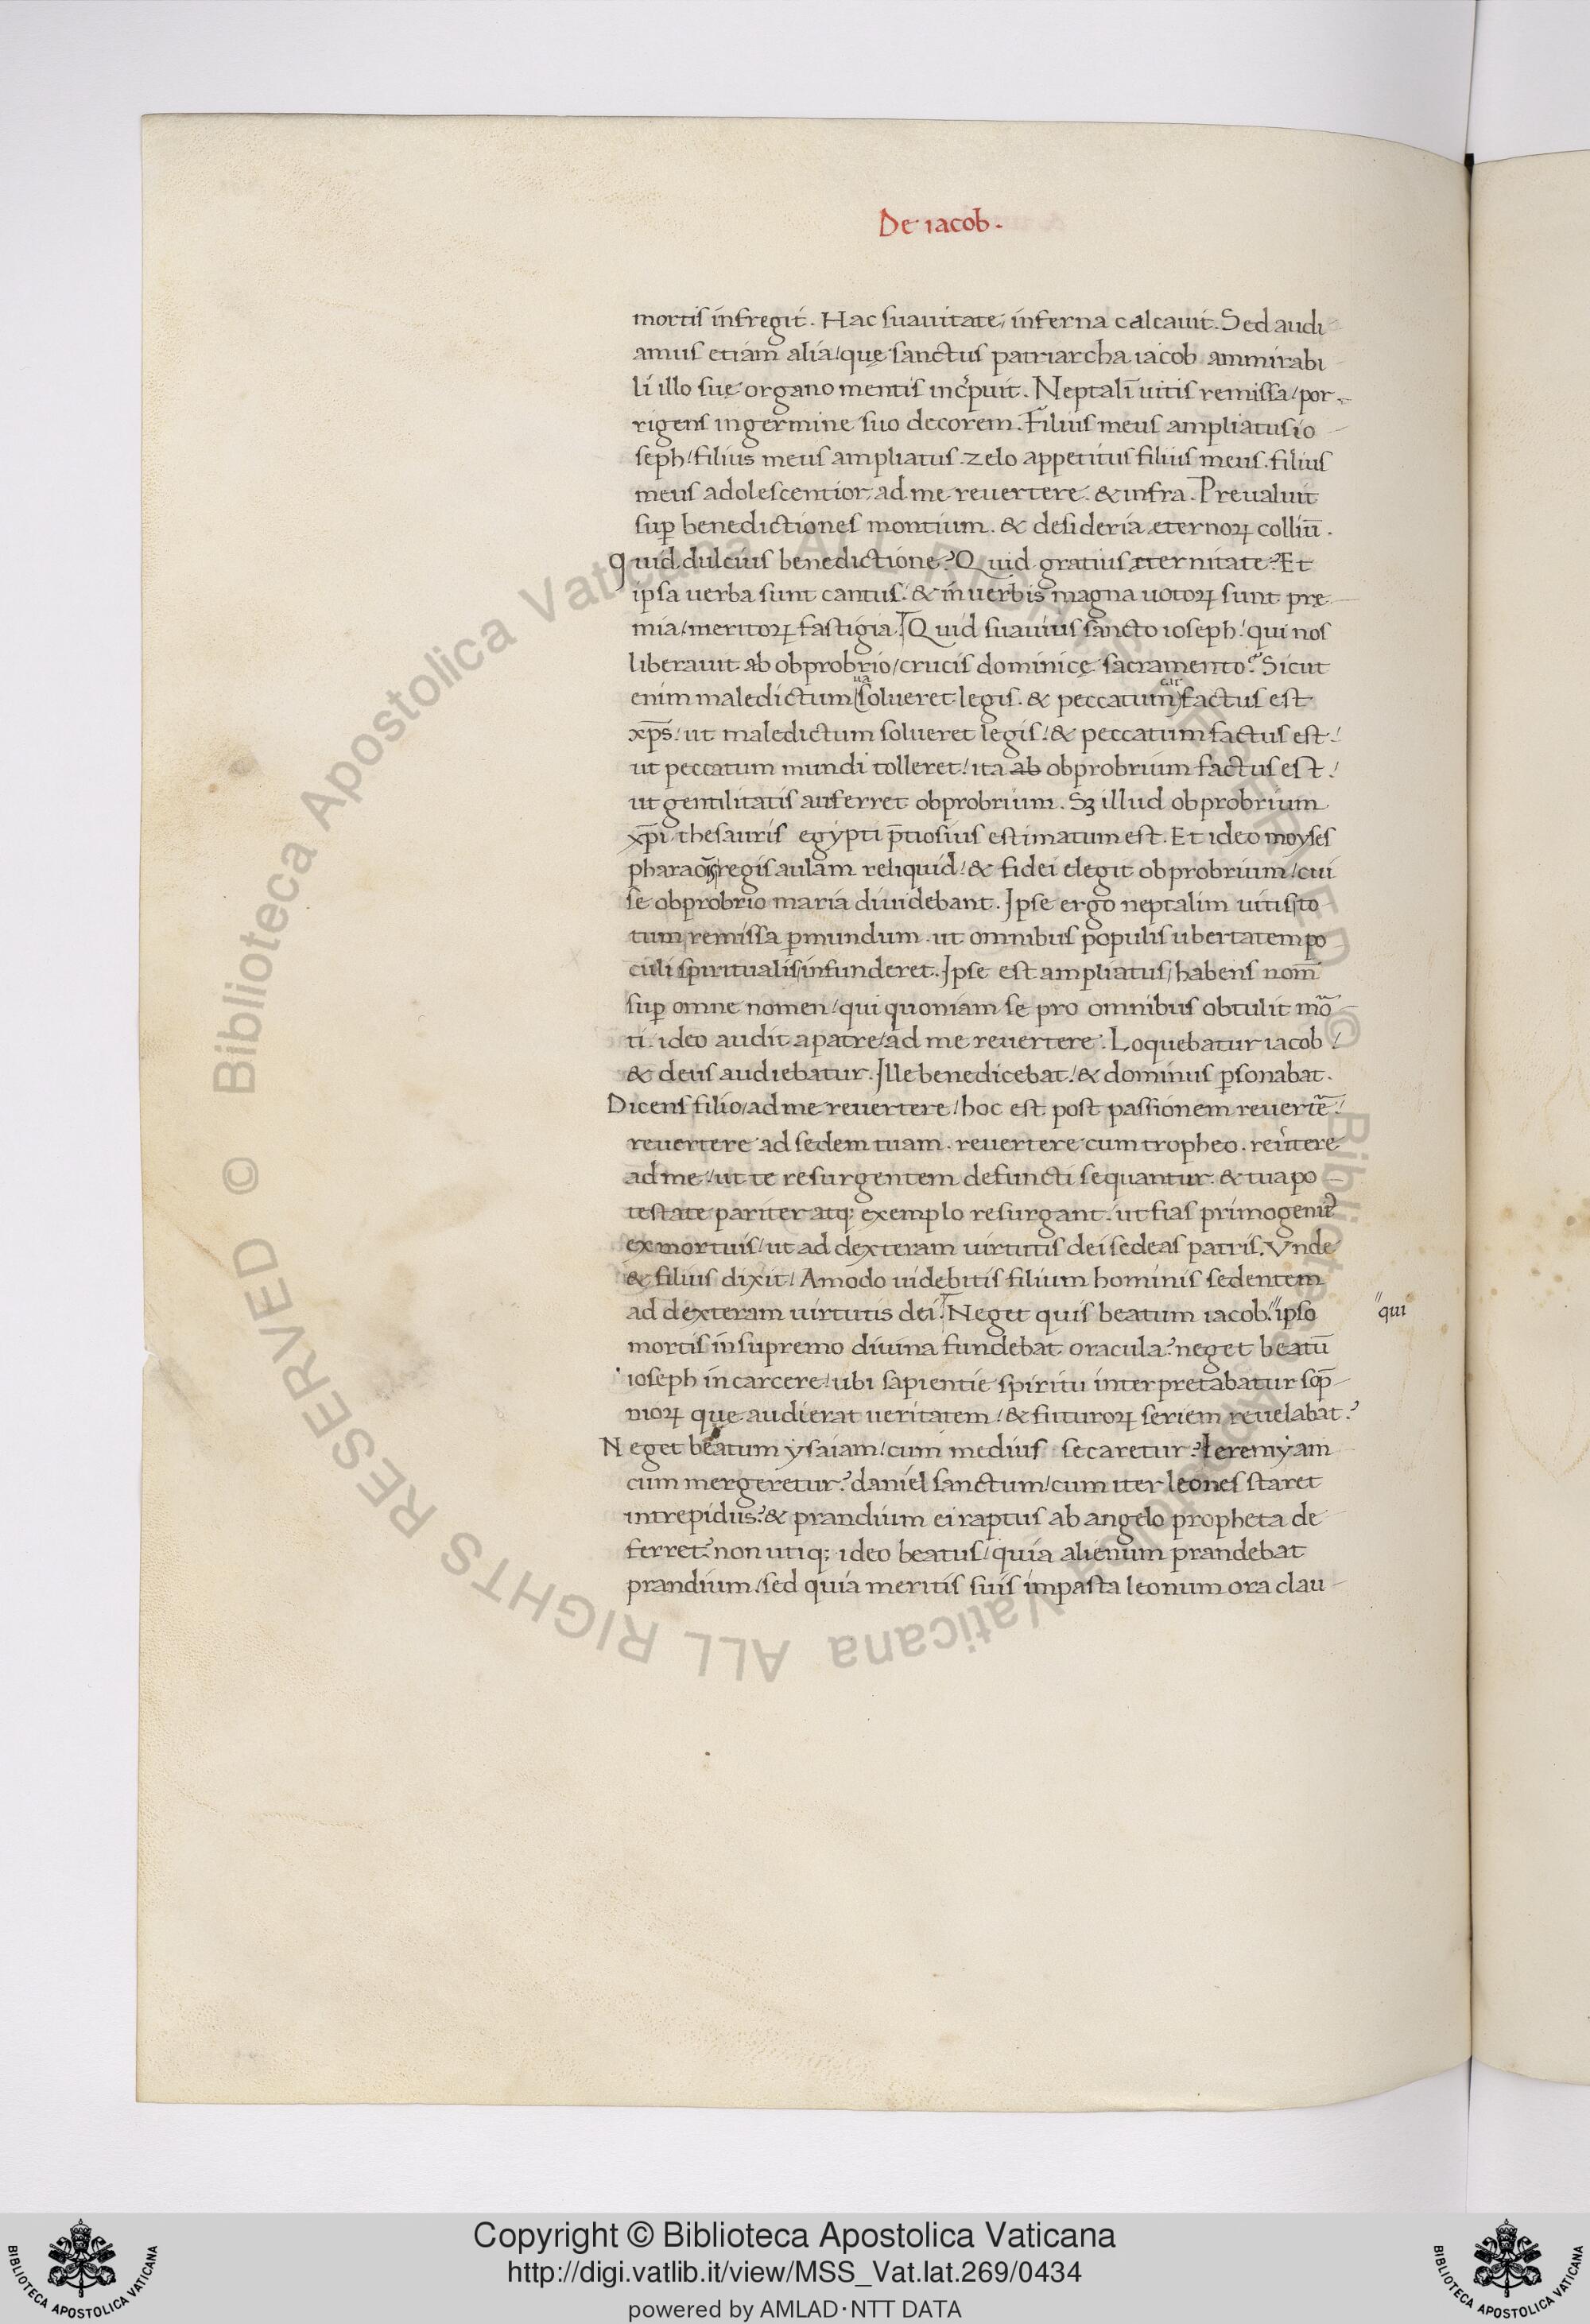 De iacob.
mortis infregit. Hac suauitate, inferna calcauit. Sed audi-
amus etiam alia/ quę sanctus patriarcha iacob ammirabi-
li illo suę organo mentis incͥpuit. Neptalī uitis remissa/ por-
rigens in germine suo decorem. Filius meus ampliatus io-
seph/ filius meus ampliatus. zelo appetitus filius meus. filius
meus adolescentior, ad me reuertere. & infra. Preualuit
suꝑ benedictiones montium. & desideria æternoꝝ colliū.
Quid dulcius benedictione? Quid gratius æternitate? Et
ipsa uerba sunt cantus. & in uerbis magna uotoꝝ sunt prę-
mia/ meritoꝝ fastigia. Quid suauius sancto ioseph! qui nos
liberauit ab obprobrio/ crucis dominicę sacramento? Sicut
enim maledictum solueret legis. & peccatum factus est
xp̄s/ ut maledictum solueret legis/ & peccatum factus est/
ut peccatum mundi tolleret/ ita ab obprobrium factus est/
ut gentilitatis auferret obprobrium. Sꝫ illud obprobrium
xp̄i thesauris egypti p̄tiosius estimatum est. Et ideo moyses
pharaonis regis aulam reliquid/ & fidei elegit obprobrium/ cui
se obprobrio maria diuidebant. Ipse ergo neptalim uitis to-
tum remissa ꝑ mundum. ut omnibus populis ubertatem po
culi spiritualis infunderet. Ipse est ampliatus/ habens nom̄
suꝑ omne nomen/ qui quoniam se pro omnibus obtulit mo᷑-
ti. ideo audit a patre/ ad me reuertere. Loquebatur iacob/
& deus audiebatur. Ille benedicebat/ & dominus ꝑsonabat.
Dicens filio/ ad me reuertere/ hoc est post passionem reuerte᷑/
reuertere ad sedem tuam. reuertere cum tropheo. reu᷑tere
ad me/ ut te resurgentem defuncti sequantur. & tua po-
testate pariter atq; exemplo resurgant. ut fias primogenitꝰ
ex mortuis/ ut ad dexteram uirtutis dei sedeas patris. Vnde
& filius dixit/ Amodo uidebitis filium hominis sedentem
ad dexteram uirtutis dei. Neget quis beatum iacob " ipso
" qui
mortis in supremo diuina fundebat oracula? neget beatū
ioseph in carcere/ ubi sapientie spiritu interpretabatur som-
nioꝝ quę audierat ueritatem/ & futuroꝝ seriem reuelabat?
Neget beatum ysaiam/ cum medius secaretur? Ieremyam
cum mergeretur? daniel sanctum/ cum iter leones staret
intrepidus? & prandium ei raptus ab angelo propheta de-
ferret? non utiq; ideo beatus/ quia alienum prandebat
prandium/ sed quia meritis suis impasta leonum ora clau-
Copyright © Biblioteca Apostolica Vaticana
http://digi.vatlib.it/view/MSS_Vat.lat.269/0434
powered by AMLAD·NTT DATA
BIBLIOTECA APOSTOLICA VATICANA
BIBLIOTECA APOSTOLICA VATICANA
© Biblioteca Apostolica Vaticana ALL RIGHTS RESERVED © Biblioteca Apostolica Vaticana ALL RIGHTS RESERVED